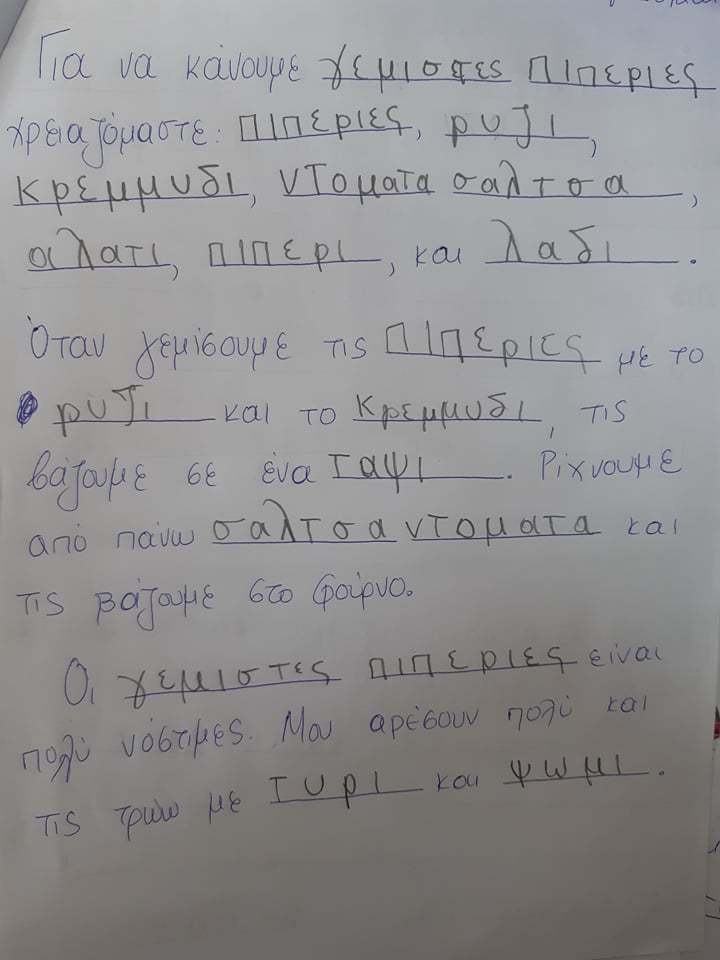 Για να κάνουμε γεμιστες πιπεριες
χρειαζόμαστε: πιπεριες, ρυζι,
κρεμμυδι, ντοματα σαλτσα,
αλατι, πιπερι, και λαδι.
Όταν γεμίσουμε τις πιπεριες με το
ρυζι και το κρεμμυδι, τις
βάζουμε σε ένα ταψι. Ρίχνουμε
από πάνω σαλτσα ντοματα και
τις βάζουμε στο φούρνο.
Οι γεμιστες πιπεριες είναι
πολύ νόστιμες. Μου αρέσουν πολύ και
τις τρώω με τυρι και ψωμι.